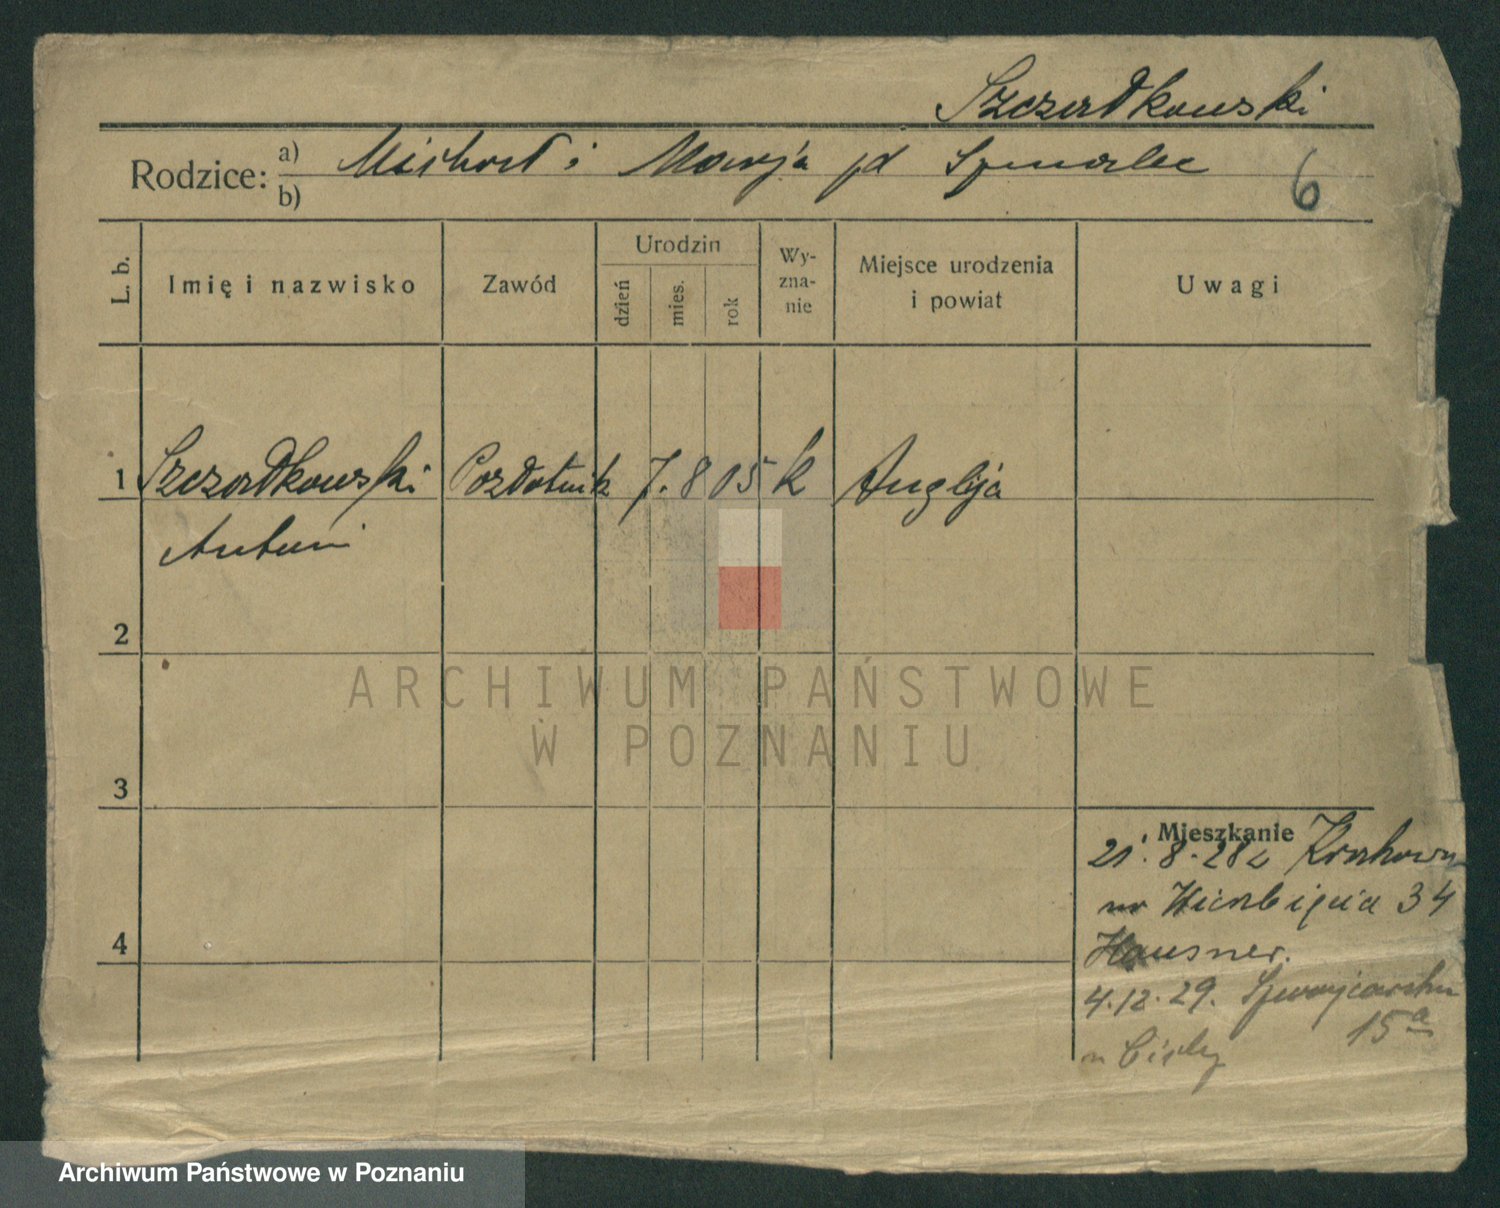 Szczerdkowski
Rodzice: a) Michał i Marja jd
b)
6
L. b. Imię i nazwisko Zawód Urodzin dzień mies. rok Wyznanie Miejsce urodzenia i powiat Uwagi
1 Szczerdkowski Pozłotnik 7. 8 05 k Anglija
Antoni
2
3
4
Mieszkanie
21. 8. 28 z Krakowa
Wierzbięcia 34
Hausner.
4. 12. 29. Szwajcarska
15a
ARCHIWUM PAŃSTWOWE
W POZNANIU
Archiwum Państwowe w Poznaniu